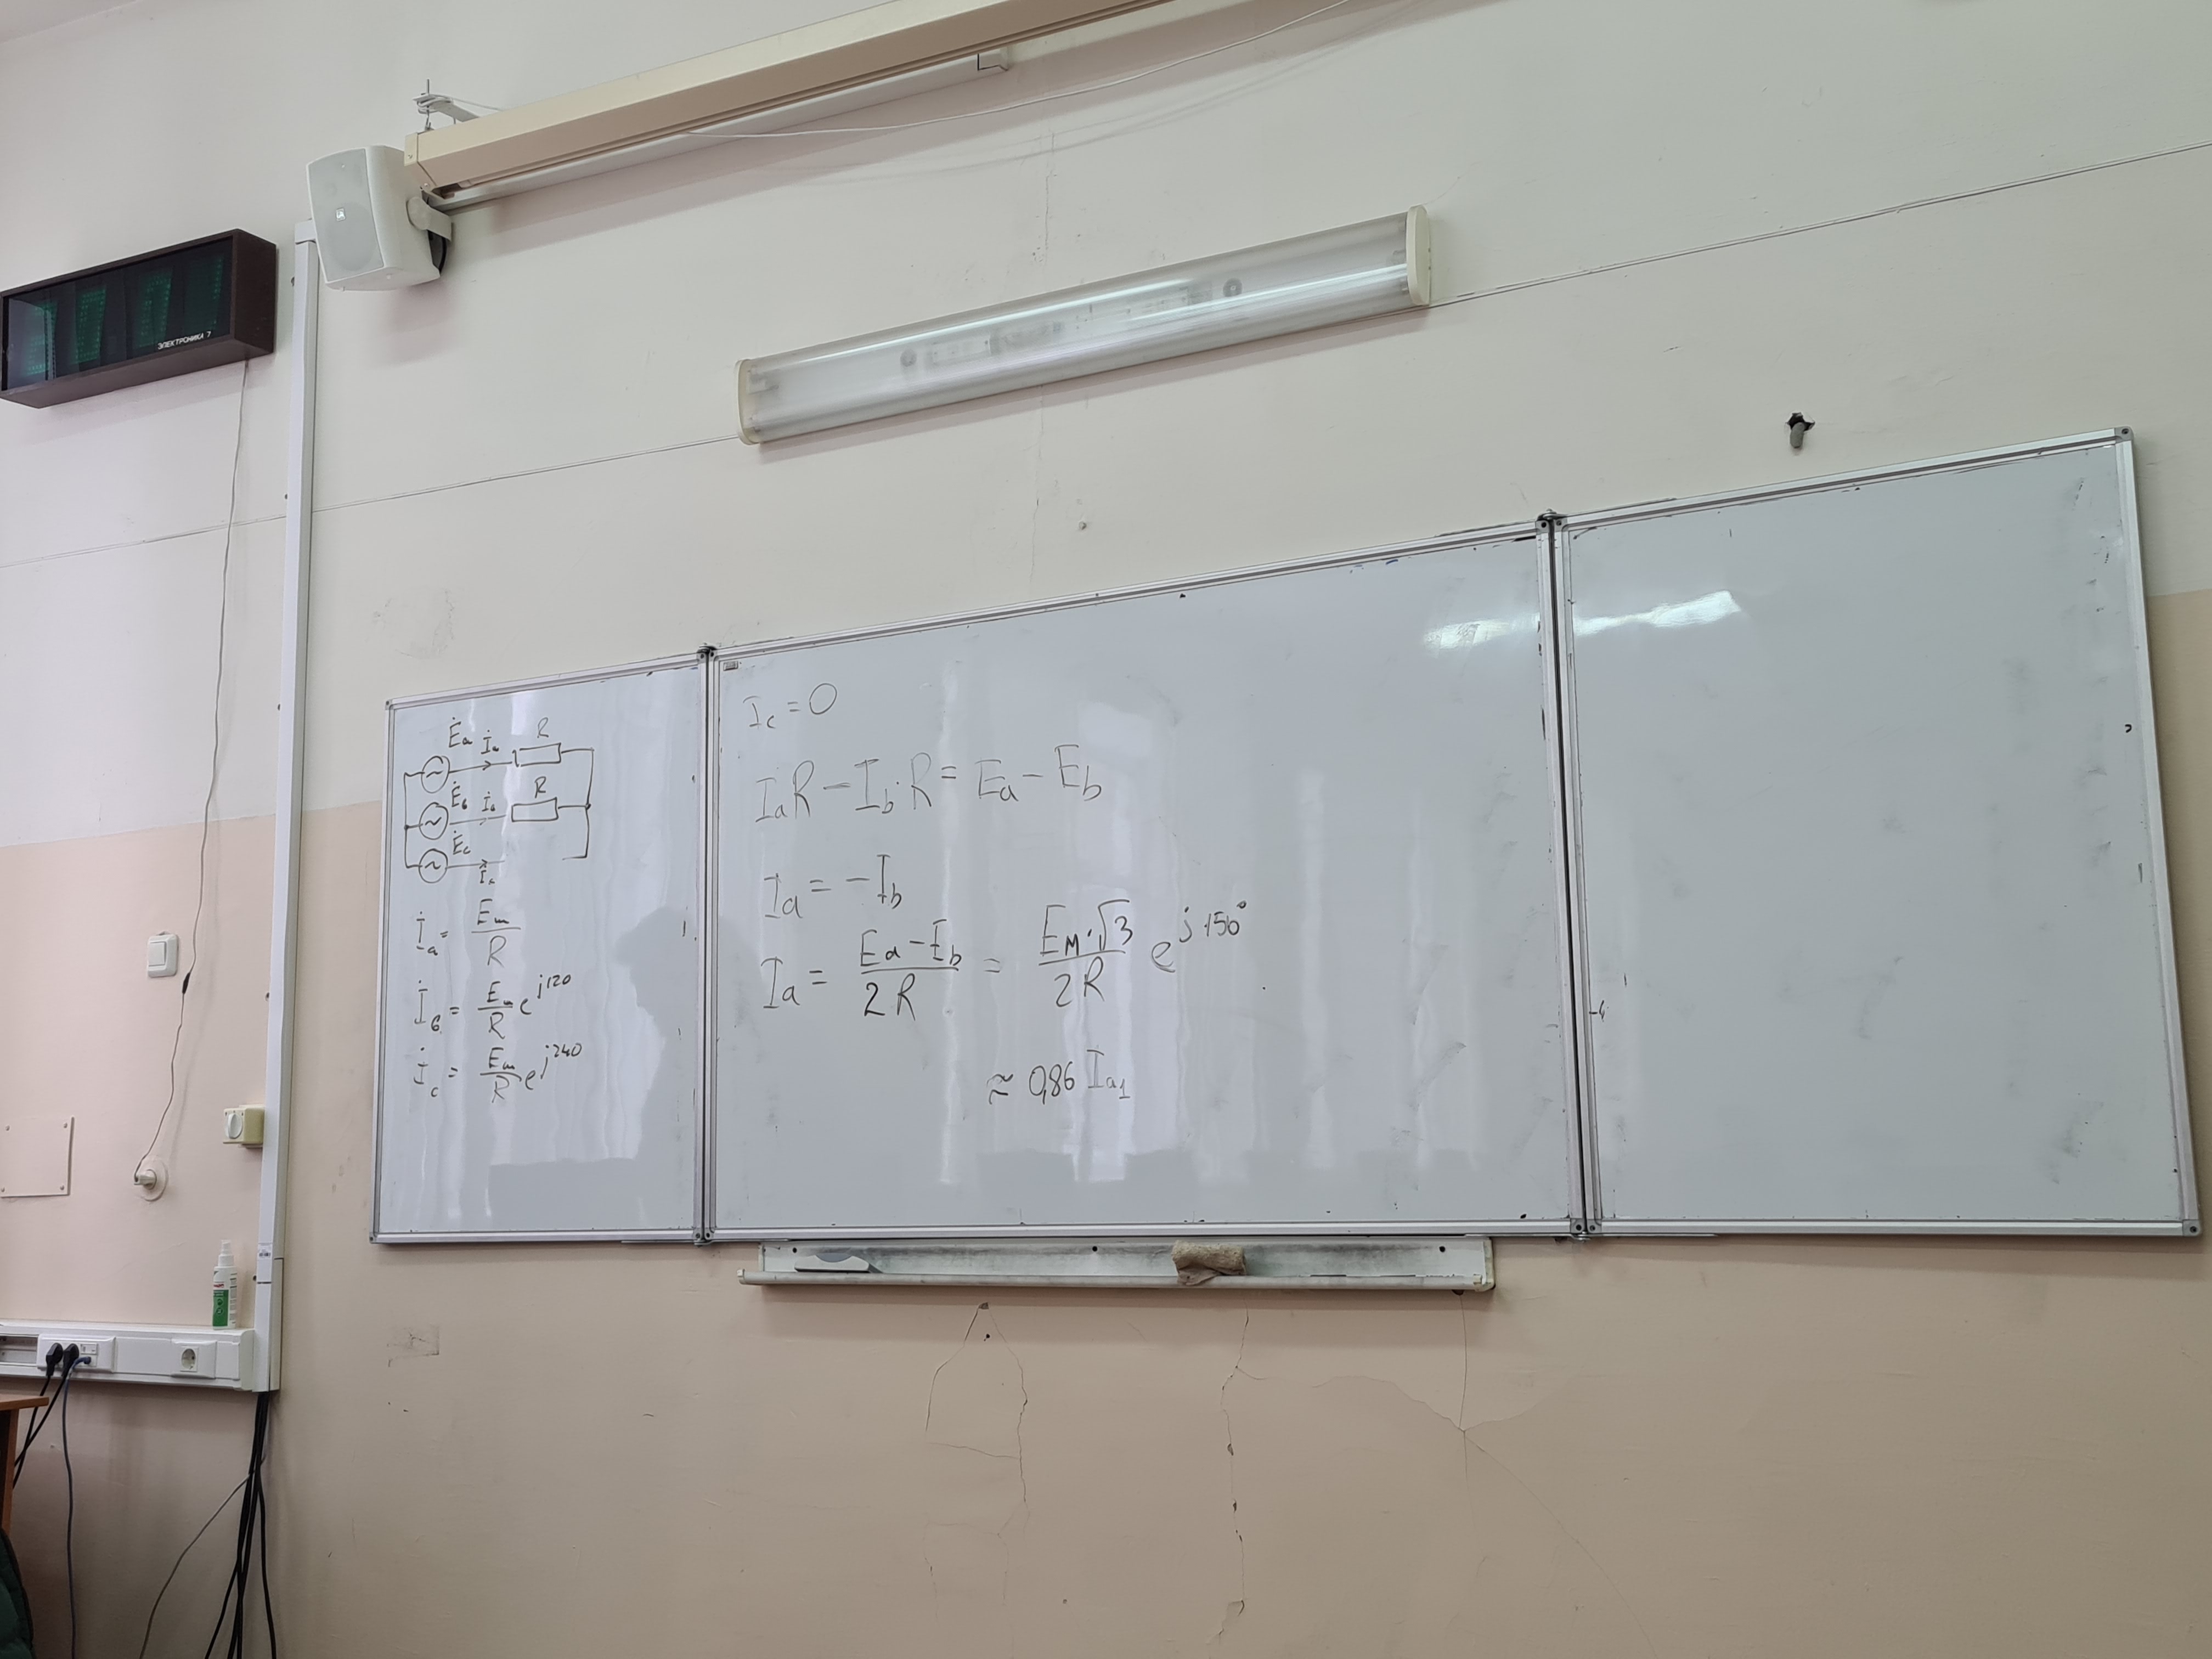 ЭЛЕКТРОНИКА 7
Ėa İa R
Ėб İв R
Ėc
İc
İa = Em/R
İб = Em/R e^j120
İc = Em/R e^j240
Ic = 0
IaR - Ib·R = Ea - Eb
Ia = -Ib
Ia = Ea - Eb/2R = Eм·√3/2R e^j·150°
≈ 0,86 Ia1